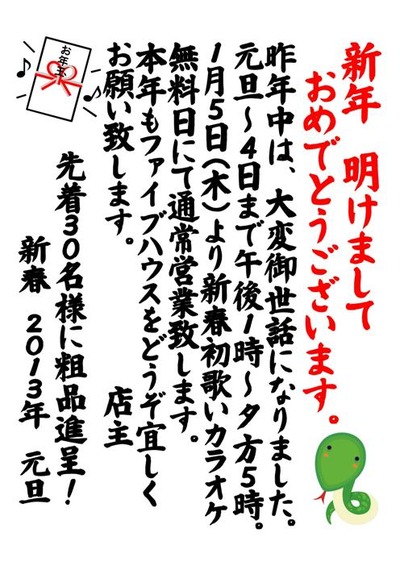 新年 明けまして
おめでとうございます。
昨年中は、大変御世話になりました。
元旦～4日まで午後1時～夕方5時。
1月5日(木)より新春初歌いカラオケ
無料日にて通常営業致します。
本年もファイブハウスをどうぞ宜しく
お願い致します。
店主
先着30名様に粗品進呈！
新春 2013年 元旦
お年玉